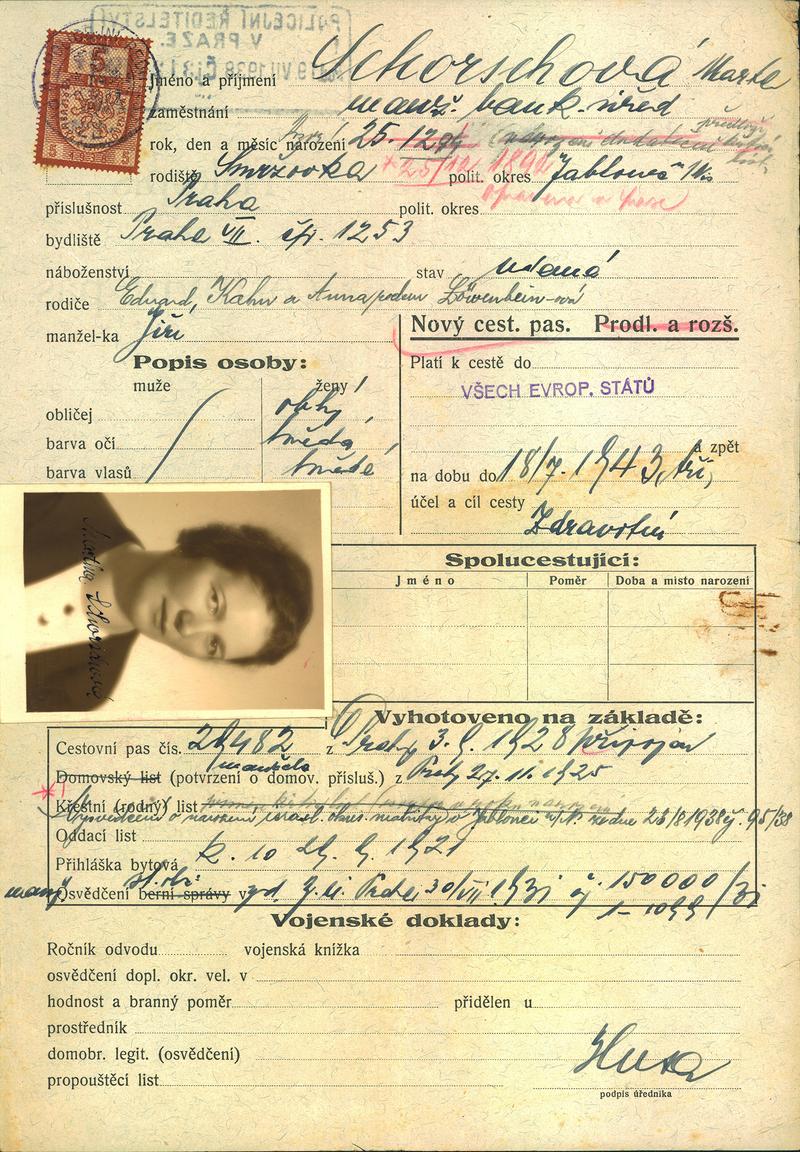 POLICEJNÍ ŘEDITELSTVÍ
V PRAZE.
Jméno a příjmení Schorschová Marta
zaměstnání manž. bank. úřed
rok, den a měsíc narození 25.12
rodiště Smržovka *25/12 1894 polit. okres Jablonec n/N
příslušnost Praha polit. okres
bydliště Praha VII. čp. 1253
náboženství stav vdaná
rodiče Eduard Kahn a Anna rodem Löwenbein-ová
manžel-ka Jiří
Nový cest. pas. Prodl. a rozš.
Popis osoby:
muže ženy
obličej oblý
barva očí hnědá
barva vlasů hnědé
Platí k cestě do
VŠECH EVROP. STÁTŮ
a zpět
na dobu do 18/7. 1943, tří,
účel a cíl cesty
Zdravotní
Martha Schorschová
Spolucestující:
Jméno Poměr Doba a místo narození
Vyhotoveno na základě:
Cestovní pas čís. 29482 z Prahy 3.9.1928 připojen
manžela
Domovský list (potvrzení o domov. přísluš.) z Prahy 27.11.1925
Křestní (rodný) list
Vysvědčení o narození israel. obec. matriky v Jablonci n/N. ze dne 23/8 1938 č. 95/38
Oddací list
Přihláška bytová k. 10 29. 9. 1921
Osvědčení berní správy v Praha 30/VII 1931 čj. 150000/31
Vojenské doklady:
Ročník odvodu vojenská knížka
osvědčení dopl. okr. vel. v
hodnost a branný poměr přidělen u
prostředník
domobr. legit. (osvědčení)
propouštěcí list
Husa
podpis úředníka